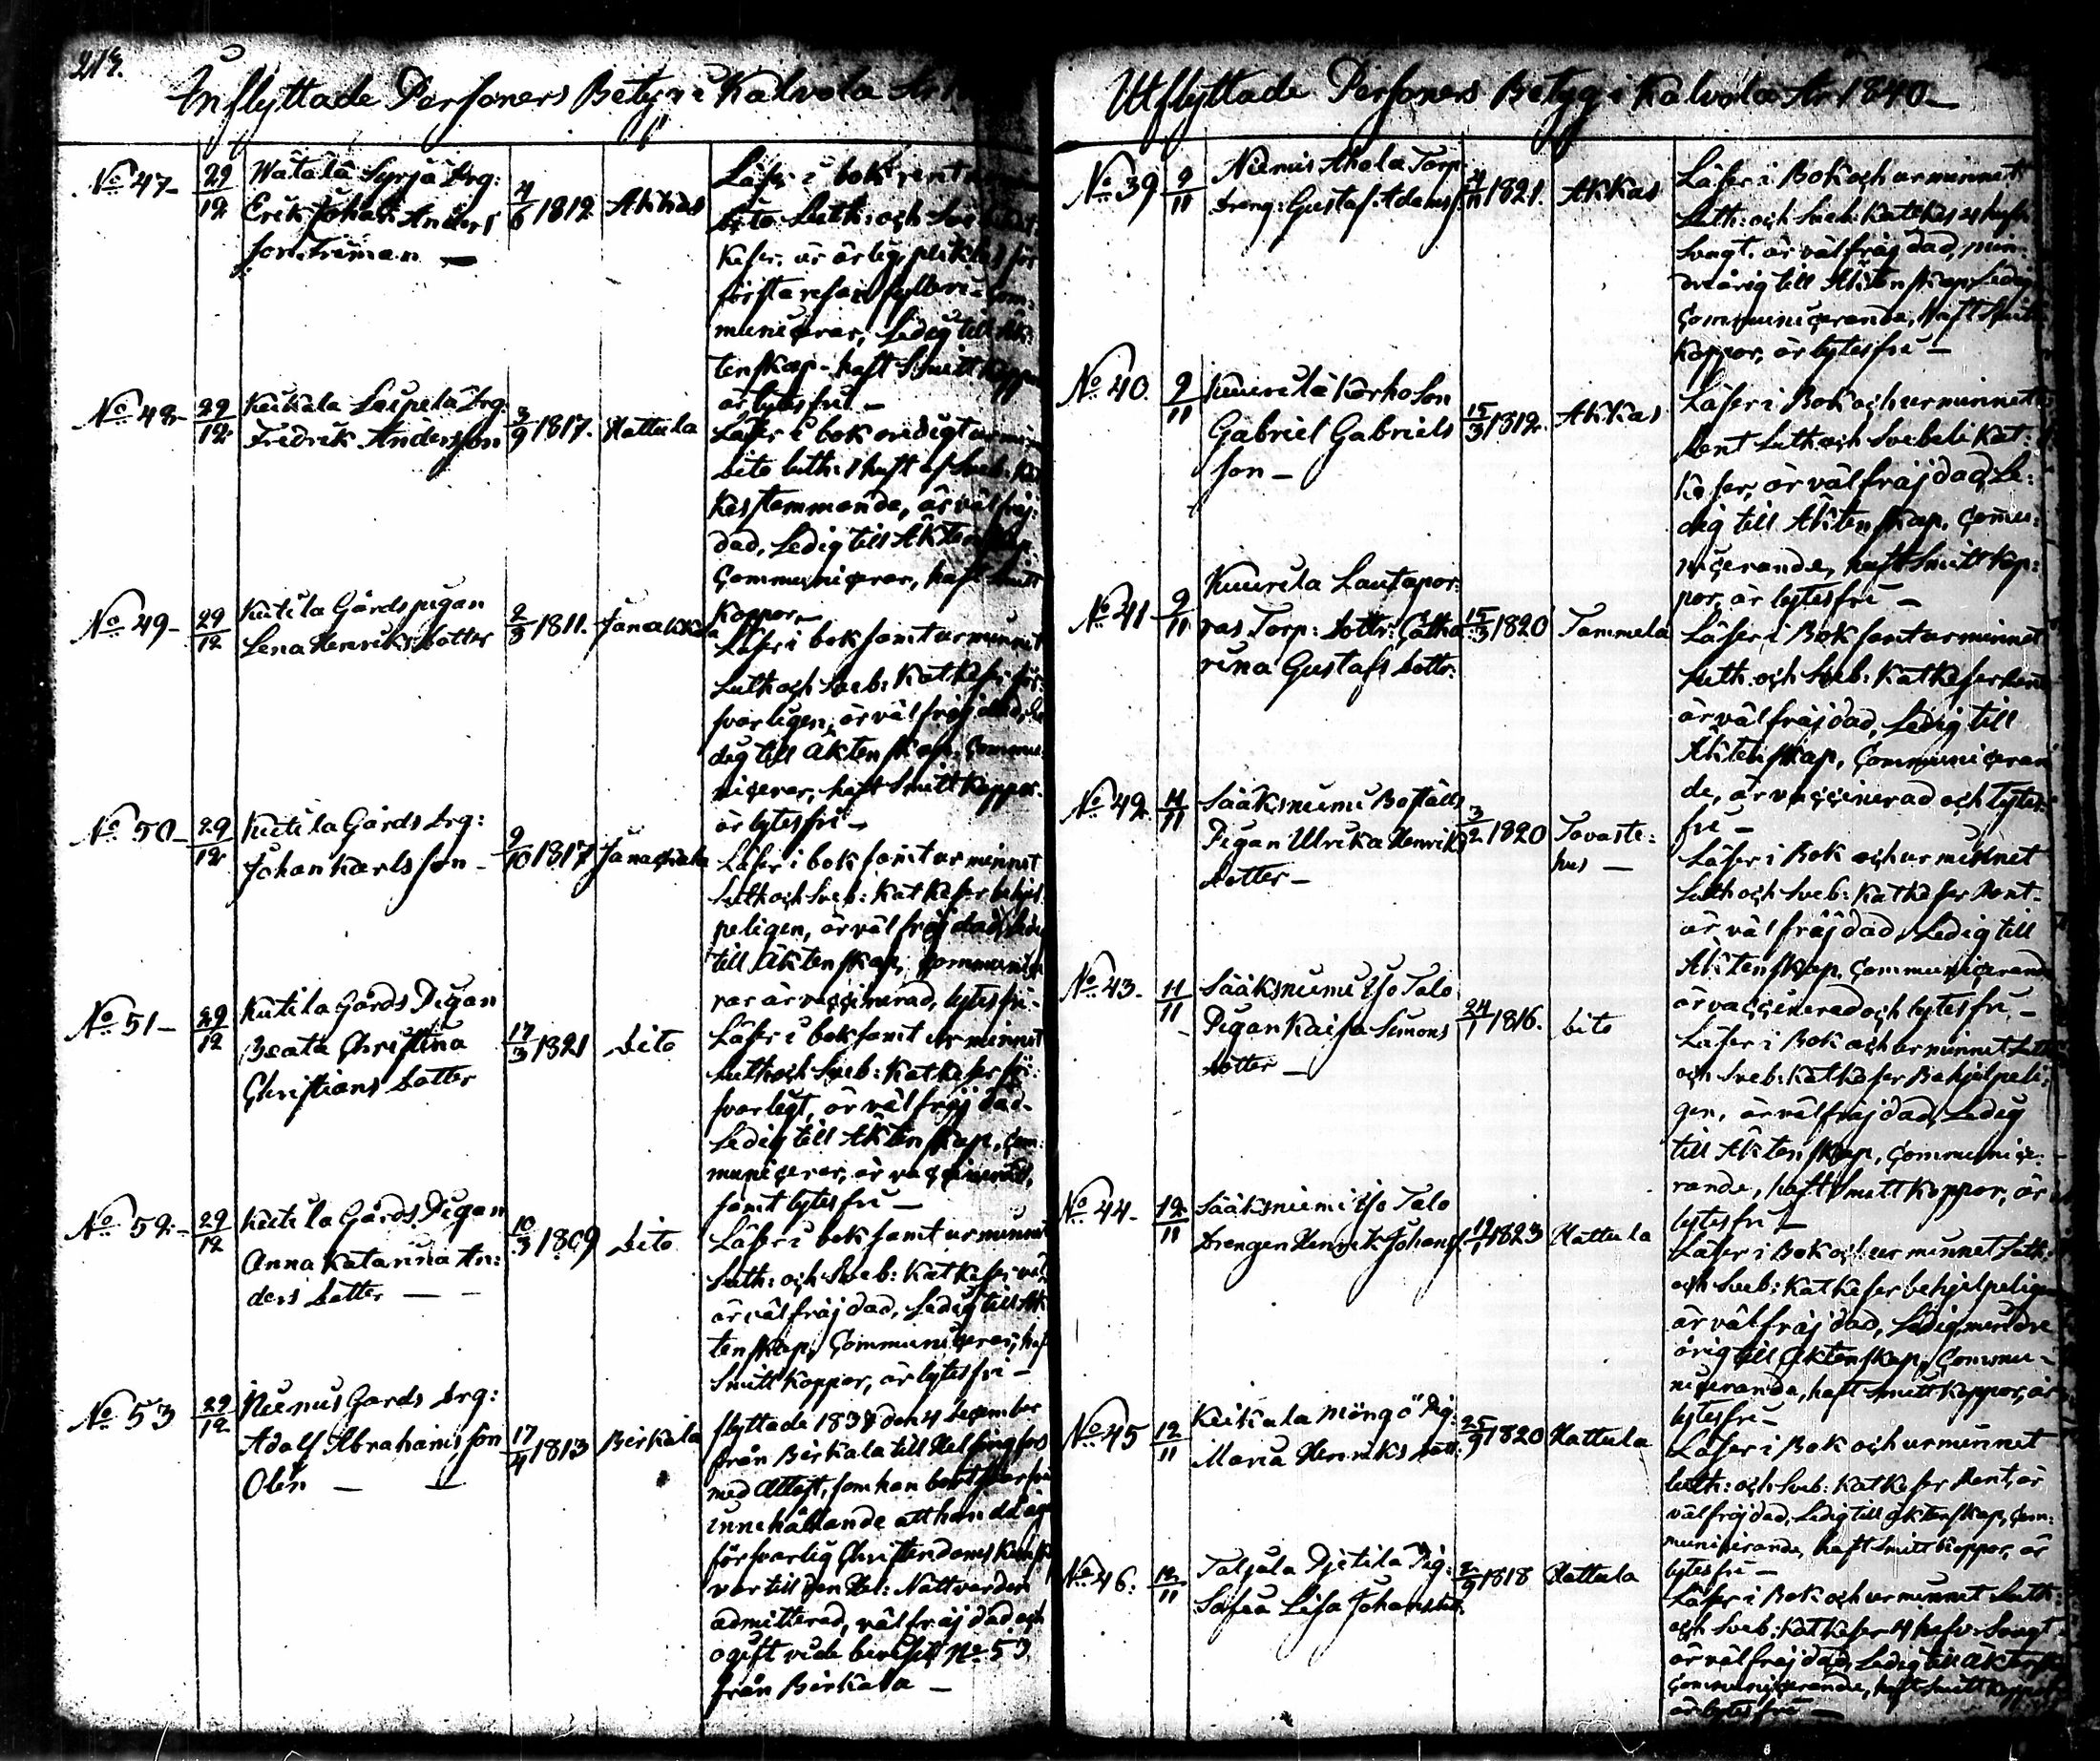 213.
Inflyttade Personers Betyg i Kalvola År
No 47- 29/12 Watala Syrjä Drg: Erik Johan Anders son Friman — 4/6 1812 Akkas
Läser i bok rent
Dito Luth: och Sve
keser, är ärlig, pliktat för
första resan fylleri com:
municerar, Ledig till Äk:
tenskap - haft Smitt koppor
är lytesfri —
No 48- 29/12 Keikala Seipela Drg. Fredrik Andersson 3/9 1817. Hattula
Läser i bok
Dito luth: 1 haft af Sveb. Kat
kes stammande, är välfräj:
dad, Ledig till Äktenskap
Communicerar, haft Smitt
koppor —
No 49- 29/12 Kutila Gårds pigan Lena Henriks Dotter 2/3 1811. Janakkala
Läser i bok samt ur minnet
Luth och Sveb: Katkeser för:
svarligen, är välfräjdad, Le
dig till äktenskap, Commu:
nicerar, haft Smitt koppor.
är lytesfri —
No 50- 29/12 Kutila Gårds Drg: Johan Karlsson - 9/10 1817 Janackala
Läser i bok samt ur minnet
Luth och Sveb: Katkeser behjel
peligen, är välfräjdad, Ledig
till Äktenskap, Communice
rar är vaccinerad, lytesfri -
No 51- 29/12 Kutila Gårds Pigan Beata Christina Christians Dotter 17/3 1821 Dito
Läser i bok samt ur minnet
Luth och Sveb: Katkeser för:
svarligt, är välfräjdad.
Ledig till Äktenskap, Com:
municerar, är vaccinerad,
samt lytesfri —
No 52- 29/12 Kutila Gårds Pigan Anna Katarina An: ders Dotter — - 10/3 1809 Dito
Läser i bok samt ur minnet
Luth: och Sveb: Katkeser väl
är välfräjdad, Ledig till Äk
tenskap, Communicerar, haft
Smitt koppor, är lytesfri —
No 53 29/12 Niemis Gards Drg: Adolf Abrahamsson Olen — — 17/4 1813 Birkala
flyttade 1837 den 4 December
från Birkala till Helsingfors
med Attest, som han bort
innehållande att han
försvarlig Christendoms kunskap
var till den Hel: Nattvarden
admitterad, välfräjdad och
ogift vide beviset No 53
från Birkala —
Utflyttade Personers Betyg i Kalvola År 1840 —
No 39 9/11 Niemis Ahola Torp Dreng: Gustaf Adamsf. 4/11 1821. Akkas
Läser i Bok och ur minnet
Luth: och Sveb: Katekes
Svagt. är välfräjdad, min:
dreårig till Äktenskap Ledig
Communicerande, Haft Smitt
koppor, är lytesfri —
No 40. 9/11 Kuurila Karho Son Gabriel Gabriels son — 15/3 1812. Akkas
Läser i Bok och ur minnet
Rent Luth och Svebeli Kat:
keser, är välfräjdad, Le:
dig till Äktenskap. Commu:
nicerande, haft Smitt kop:
por, är lytesfri —
No 41 9/11 Kuurila Lautapor: ras Torp: Dottr: Catha rina Gustafs Dottr: 15/3 1820 Tammela
Läser i Bok samt ur minnet
Luth: och Sveb: Katkeser
är välfräjdad, Ledig till
Äktenskap, Communiceran
de, är vaccinerad och lytes:
fri —
No 42. 11/11 Sääksniemi Boställs Pigan Ulrika Henriks Dotter — 3/2 1820 Tavaste: hus —
Läser i Bok och ur minnet
Luth och Sveb: Katkeser Rent-
är välfräjdad, Ledig till
Äktenskap, Communicerande
är vaccinerad och lytesfri —
No 43. 11/11 Sääksniemi Yso Talo Pigan Kaisa Simons Dotter — 24/1 1816. Dito
Läser i Bok och ur minnet Luth
och Sveb: Katkeser Behjelpeli:
gen, är välfräjdad, Ledig
till Äktenskap, Communice:
rande, haft Smitt koppor, är
lytesfri —
No 44- 12/11 Sääksniemi Yso Talo Drengen Henrik Johansf. 19/1 1823 Hattula
Läser i Bok och ur minnet Luth.
och Sveb: Katkeser behjelpeligen
är välfräjdad, Ledig, mindre
årig till äktenskap, Commu-
nicerande, haft Smitt koppor, är
lytesfri —
No 45 12/11 Keikala Möngö Pig: Maria Henriks Dott: 25/9 1820 Hattula
Läser i Bok och ur minnet
Luth: och Sveb: Katkeser Rent, är
välfräjdad, Ledig till äktenskap, Com:
municerande, haft Smitt koppor, är
lytesfri —
No 46: 12/11 Taljala Pjetilä Pig: Safia Lisa Johansdr. 2/9 1818 Hattula
Läser i Bok och ur minnet Luth:
och Sveb: Katkeser Svagt
är välfräjdad, Ledig till äktenskap
Communicerande, haft Smitt koppor
är lytesfri —